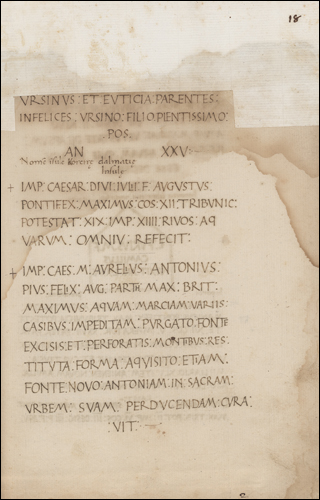 18
VRSINVS · ET · EVTICIA · PARENTES ·
INFELICES · VRSINO · FILIO · PIENTISSIMO ·
POS ·
AN XXV ·
dalmatie
Insule
+ IMP · CAESAR · DIVI · IVLII · F · AVGVSTVS ·
PONTIFEX · MAXIMVS · COS · XII · TRIBVNIC ·
POTESTAT · XIX · IMP · XIIII · RIVOS · AQ
VARVM · OMNIV · REFECIT ·
+ IMP · CAES · M · AVRELVS · ANTONIVS ·
PIVS · FELIX · AVG · PARTH · MAX · BRIT ·
MAXIMVS · AQVAM · MARCIAM · VARIIS ·
CASIBVS · IMPEDITAM · PVRGATO · FONTE
EXCISIS · ET · PERFORATIS · MONTIBVS · RES ·
TITVTA · FORMA · AQVISITO · ETIAM ·
FONTE · NOVO · ANTONIAM · IN · SACRAM ·
VRBEM · SVAM · PERDVCENDAM · CVRA ·
VIT ·